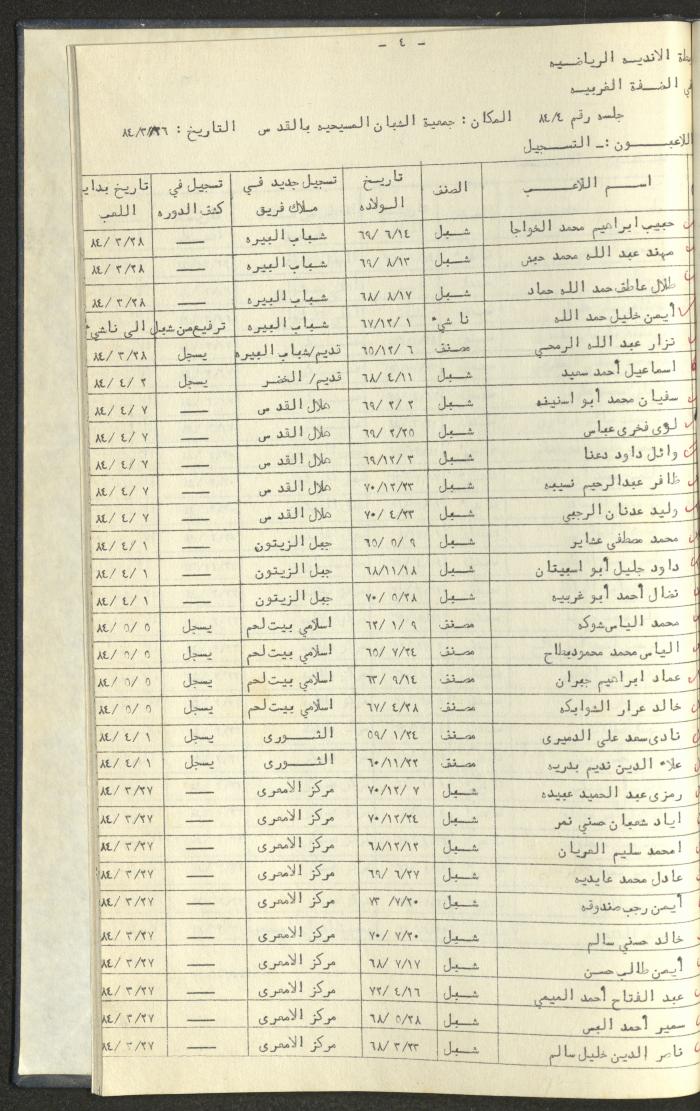 - ٤ -
الانديه الرياضيه
الضفة الغربيه
جلسه رقم ٨٤/٤ المكان : جمعية الشبان المسيحيه بالقدس التاريخ : ٨٤/٣/٢٦
اللاعبون :ـ التسجيل
اسم اللاعب الصنف تاريخ الولاده تسجيل جديد في ملاك فريق تسجيل في كشف الدوره تاريخ بداية اللعب
حبيب ابراهيم محمد الخواجا شبل ٦٩/ ٦/١٤ شباب البيره — ٨٤/ ٣/٢٨
مهند عبد الله محمد حبش شبل ٦٩/ ٨/١٣ شباب البيره — ٨٤/ ٣/٢٨
طلال عاطف حمد الله حماد شبل ٦٨/ ٨/١٧ شباب البيره — ٨٤/ ٣/٢٨
أيمن خليل حمد الله ناشيء ٦٧/١٢/ ١ شباب البيره ترفيع من شبل الى ناشيء
نزار عبد الله الرمحي مصنف ٦٥/١٢/ ٦ قديم/شباب البيره يسجل ٨٤/ ٣/٢٨
اسماعيل أحمد سعيد شبل ٦٨/ ٤/١١ قديم/ الخضر يسجل ٨٤/ ٤/ ٢
سفيان محمد أبو اسنينه شبل ٦٩/ ٢/ ٢ هلال القدس — ٨٤/ ٤/ ٧
لؤى فخرى عباس شبل ٦٩/ ٢/٢٥ هلال القدس — ٨٤/ ٤/ ٧
وائل داود دعنا شبل ٦٩/١٢/ ٣ هلال القدس — ٨٤/ ٤/ ٧
ظافر عبدالرحيم نسيبه شبل ٧٠/١٢/٢٣ هلال القدس — ٨٤/ ٤/ ٧
وليد عدنان الرجبي شبل ٧٠/ ٤/٢٣ هلال القدس — ٨٤/ ٤/ ٧
محمد مصطفى عشاير شبل ٦٥/ ٥/ ٩ جبل الزيتون — ٨٤/ ٤/ ١
داود جليل أبو اسبيتان شبل ٦٨/١١/١٨ جبل الزيتون — ٨٤/ ٤/ ١
نضال أحمد أبو غربيه شبل ٧٠/ ٥/٢٨ جبل الزيتون — ٨٤/ ٤/ ١
محمد الياس شوكه مصنف ٦٢/ ١/ ٩ اسلامي بيت لحم يسجل ٨٤/ ٥/ ٥
الياس محمد محمود مصنف ٦٥/ ٧/٢٤ اسلامي بيت لحم يسجل ٨٤/ ٥/ ٥
عماد ابراهيم جبران مصنف ٦٣/ ٩/١٤ اسلامي بيت لحم يسجل ٨٤/ ٥/ ٥
خالد عرار الشوابكه مصنف ٦٧/ ٤/٢٨ اسلامي بيت لحم يسجل ٨٤/ ٥/ ٥
نادى سعد على الدميرى مصنف ٥٩/ ١/٢٤ الثورى يسجل ٨٤/ ٤/ ١
علاء الدين نديم بدريه مصنف ٦٠/١١/٢٢ الثورى يسجل ٨٤/ ٤/ ١
رمزى عبد الحميد عبيده شبل ٧٠/١٢/ ٧ مركز الامعرى — ٨٤/ ٣/٢٧
اياد شعبان حسني نمر شبل ٧٠/١٢/٢٤ مركز الامعرى — ٨٤/ ٣/٢٧
امحمد سليم العريان شبل ٦٨/١٢/١٢ مركز الامعرى — ٨٤/ ٣/٢٧
عادل محمد عايديه شبل ٦٩/ ٦/٢٧ مركز الامعرى — ٨٤/ ٣/٢٧
أيمن رجب صندوقه شبل ٧٣/ ٧/٢٠ مركز الامعرى — ٨٤/ ٣/٢٧
خالد حسني سالم شبل ٧٠/ ٧/٢٠ مركز الامعرى — ٨٤/ ٣/٢٧
أيمن طالب حسن شبل ٦٨/ ٧/١٧ مركز الامعرى — ٨٤/ ٣/٢٧
عبد الفتاح أحمد الميمي شبل ٧٢/ ٤/١٦ مركز الامعرى — ٨٤/ ٣/٢٧
سمير أحمد البس شبل ٦٨/ ٥/٢٨ مركز الامعرى — ٨٤/ ٣/٢٧
ناصر الدين خليل سالم شبل ٦٨/ ٣/٢٣ مركز الامعرى — ٨٤/ ٣/٢٧